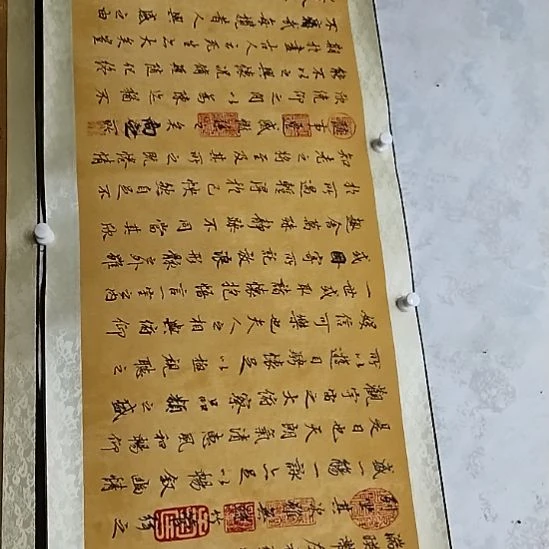 盛一觴一詠亦足以暢敘幽情
是日也天朗氣清惠風和暢仰
觀宇宙之大俯察品類之盛
所以遊目騁懷足以極視聽之
娛信可樂也夫人之相與俯仰
一世或取諸懷抱悟言一室之內
或因寄所託放浪形骸之外雖
趣舍萬殊靜躁不同當其欣
於所遇暫得於己快然自足不
知老之將至及其所之既倦情
隨事遷感慨係之矣向之所
欣俛仰之間以為陳迹猶不
能不以之興懷況脩短隨化終
期於盡古人云死生亦大矣豈
不痛哉每攬昔人興感之由